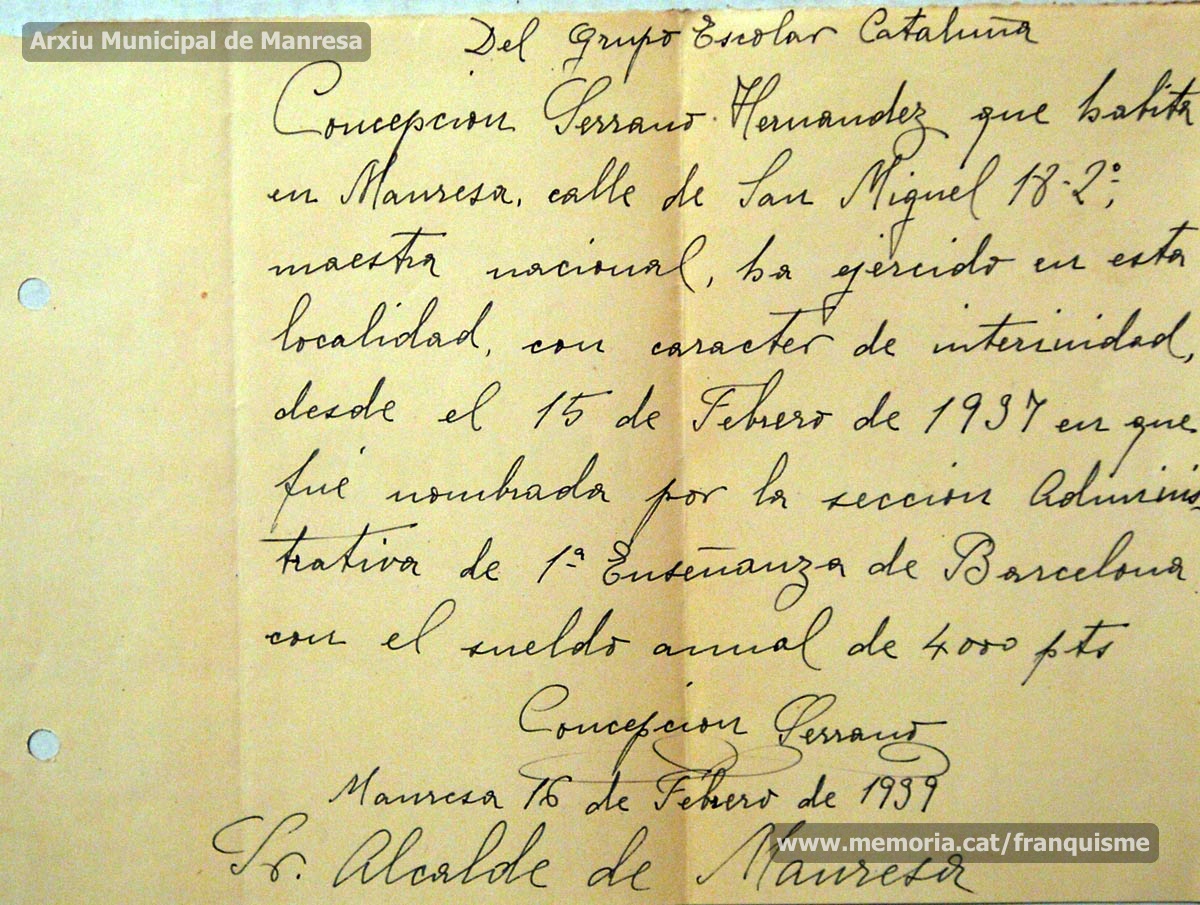 Arxiu Municipal de Manresa
Del Grupo Escolar Cataluña
Concepcion Serrano Hernandez que habita
en Manresa, calle de San Miguel 18-2º;
maestra nacional, ha ejercido en esta
localidad, con caracter de interinidad,
desde el 15 de Febrero de 1937 en que
fué nombrada por la seccion Adminis-
trativa de 1ª Enseñanza de Barcelona
con el sueldo anual de 4000 pts
Concepcion Serrano
Manresa 16 de Febrero de 1939
www.memoria.cat/franquisme
Sr. Alcalde de Manresa